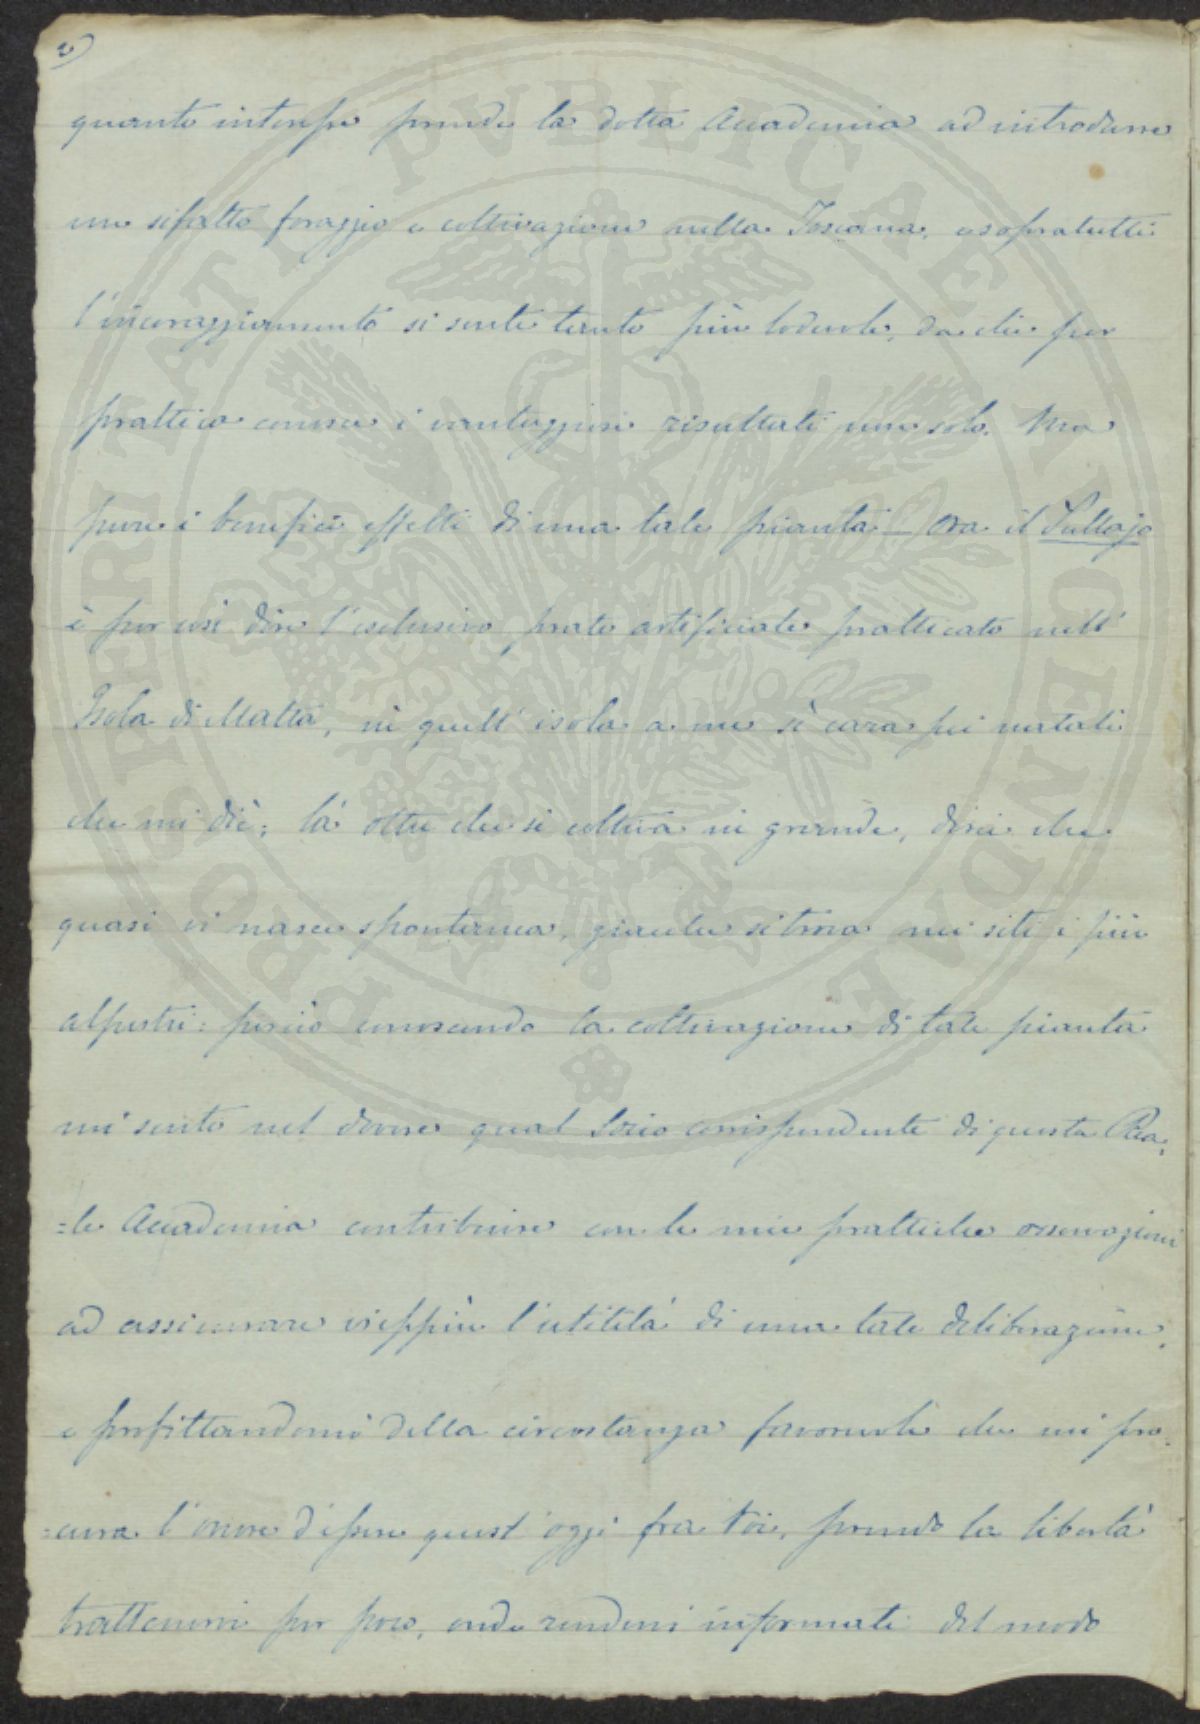 2)
quanto interesse prende la dotta Accademia ad introdurre
un sifatto foraggio e coltivazione nella Toscana, e sopratutti
l'incoraggiamento si sente tanto più lodevole, da chi per
prattica conosce i vantaggiosi risultati non solo. Ma
pure i benefici effetti di una tale pianta — Ora il Sullajo
è per così dire l'esclusivo prato artificiale pratticato nell'
Isola di Malta, in quell'isola a me sì cara pei natali
che mi diè; là oltre che si coltiva in grande, direi che
quasi vi nasce spontanea, giacche si trova nei siti i più
alpestri: perciò conoscendo la coltivazione di tale pianta
mi sento nel dovere qual Socio corrispondente di questa Rea,
=le Accademia contribuire con le mie prattiche osservazioni
ad assicurare vieppiù l'utilità di una tale deliberazione,
e profittandomi della circostanza favorevole che mi pro,
=cura l'onore d'essere quest'oggi fra Voi, prendo la libertà
trattenervi per poco, onde rendervi informati del modo
PROSPERITATI PUBLICAE AUGENDAE